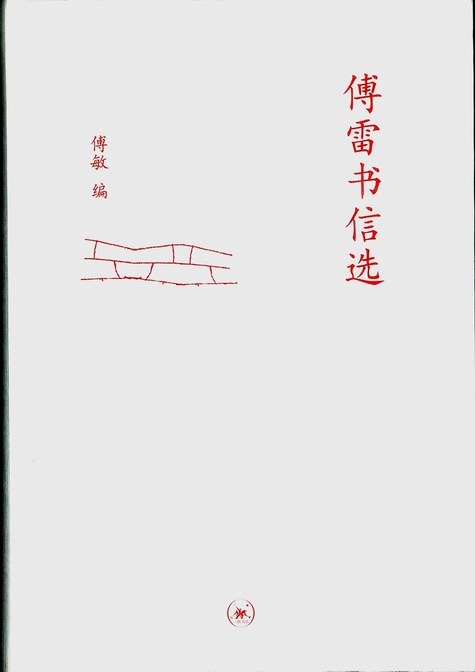 傅雷书信选
傅敏 编